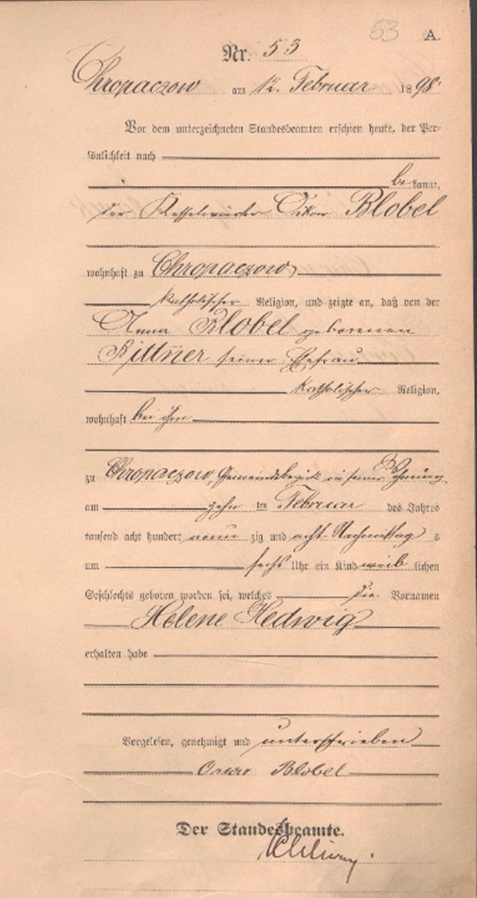 53 A.
Nr. 53
Chropaczow am 12. Februar 1898
Vor dem unterzeichneten Standesbeamten erschien heute, der Per-
sönlichkeit nach
be kannt,
der Kesselwärter Oskar Blobel
wohnhaft zu Chropaczow
katholischer Religion, und zeigte an, daß von der
Anna Blobel geborenen
Bittner seiner Ehefrau
katholischer Religion,
wohnhaft bei ihm
zu Chropaczow, Gemeindebezirk in seiner Wohnung
am zehn ten Februar des Jahres
tausend acht hundert neun zig und acht Nachmittag s
um sechs Uhr ein Kind weib lichen
Geschlechts geboren worden sei, welches die Vornamen
Helene Hedwig
erhalten habe
Vorgelesen, genehmigt und unterschrieben
Blobel
Der Standesbeamte.